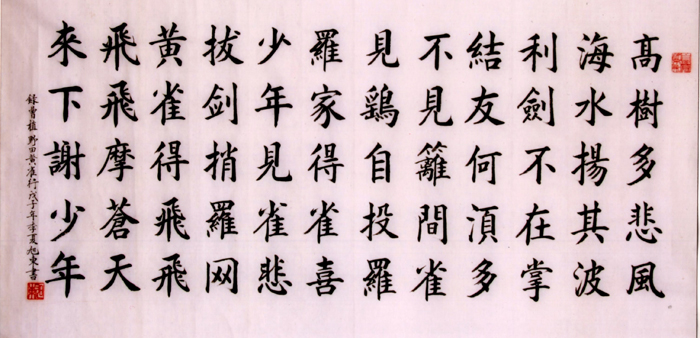 髙樹多悲風
海水揚其波
利劍不在掌
結友何湏多
不見籬間雀
見鷂自投羅
羅家得雀喜
少年見雀悲
拔剑捎羅网
黄雀得飛飛
飛飛摩蒼天
來下謝少年
錄曹植野田黄雀行戊子年季夏旭東書